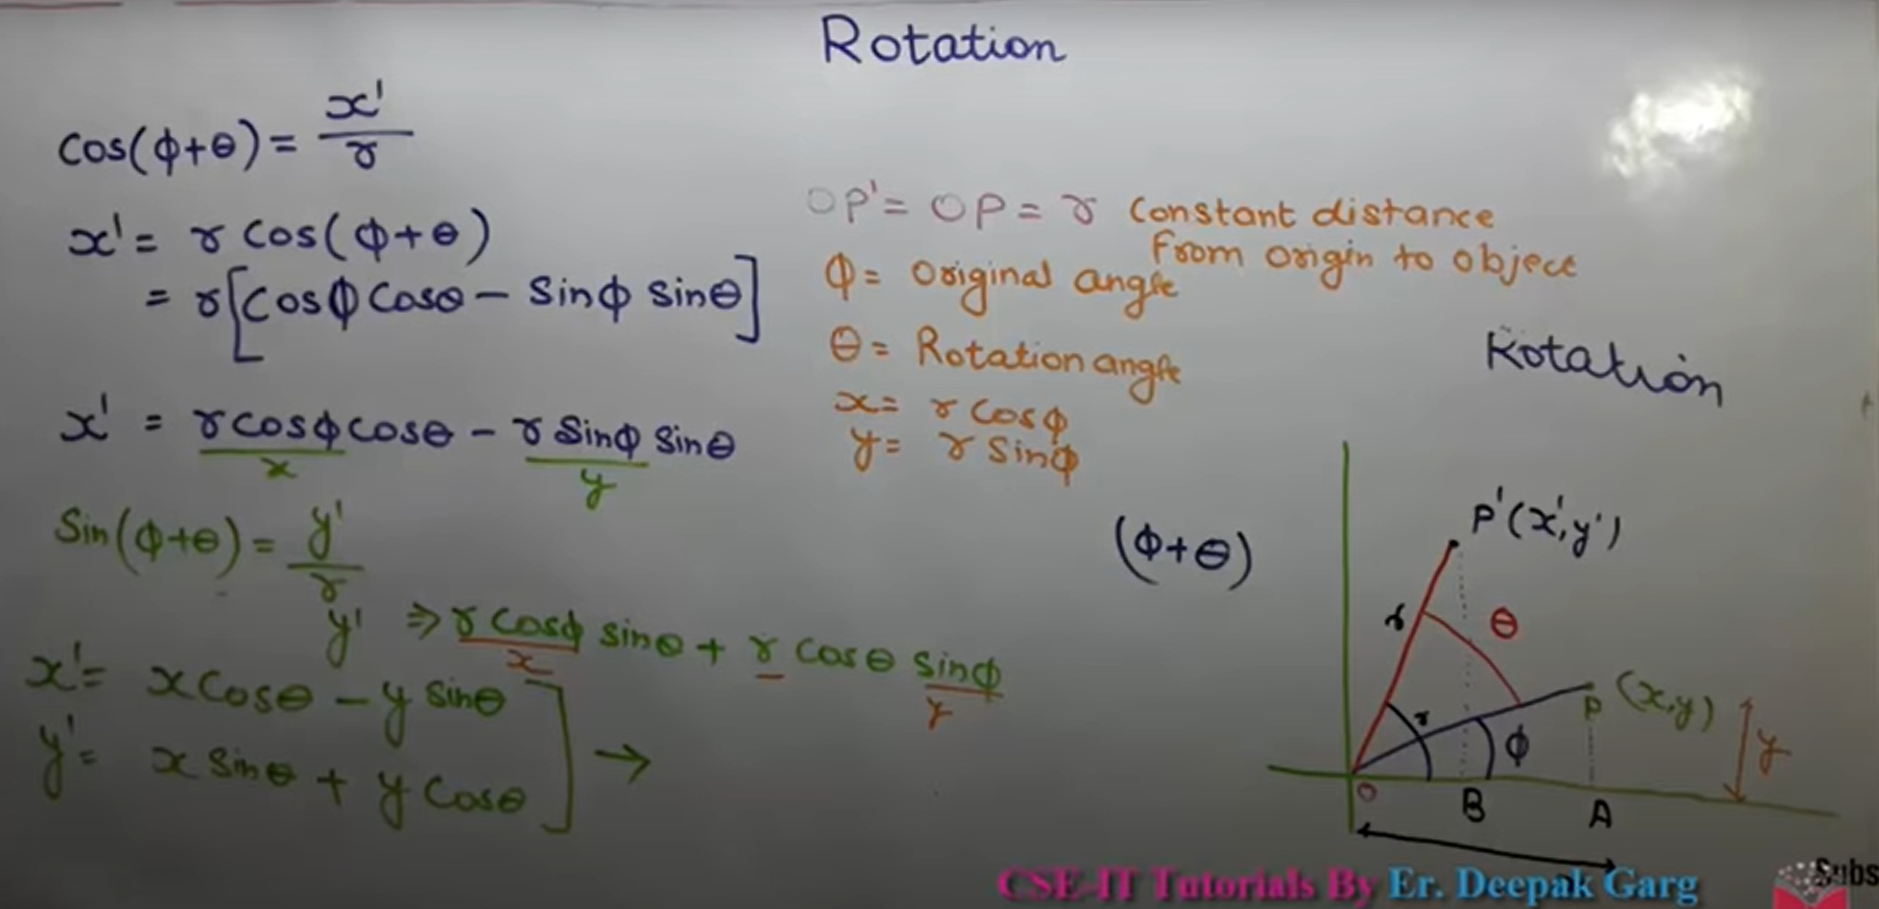 Rotation
Cos(ϕ+θ) = x'/r
x' = r Cos(ϕ+θ)
= r[Cosϕ Cosθ - Sinϕ Sinθ]
x' = rcosϕ cosθ - r Sinϕ Sinθ
x
y
Sin(ϕ+θ) = y'/r
y' ⇒ r Cosϕ sinθ + r Cosθ sinϕ
x
y
x' = xCosθ - y Sinθ
y' = x Sinθ + y Cosθ
→
OP' = OP = r Constant distance
From origin to object
ϕ = Original angle
θ = Rotation angle
x = r Cosϕ
y = r Sinϕ
Rotation
(ϕ+θ)
P'(x',y')
r
θ
P (x,y)
r
ϕ
y
O
B
A
CSE-IT Tutorials By Er. Deepak Garg
Subs